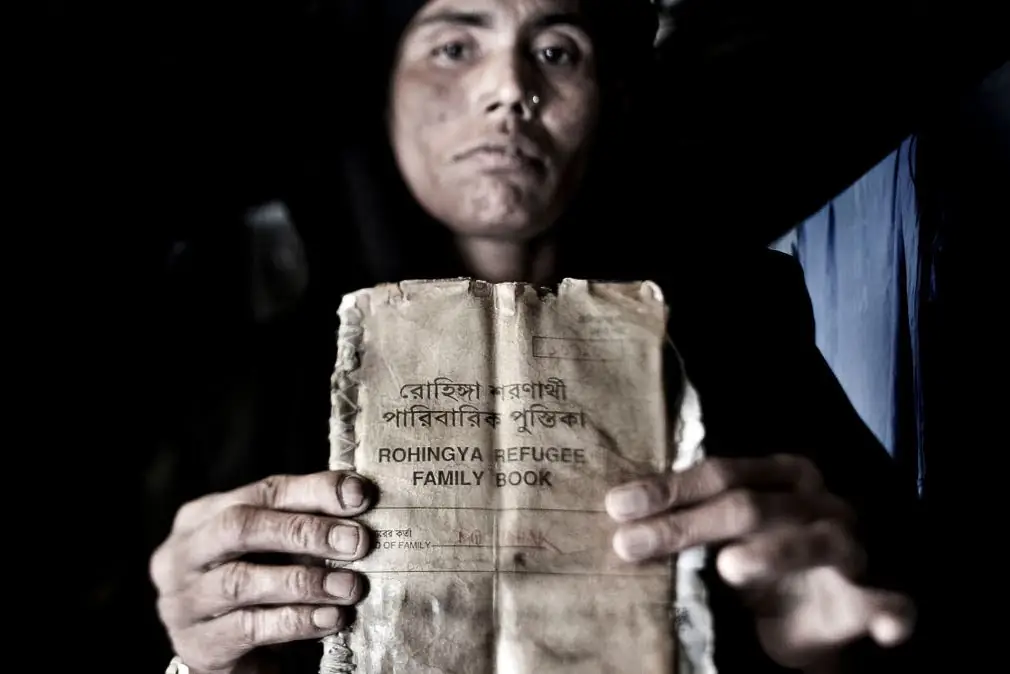 রোহিঙ্গা শরণার্থী
পারিবারিক পুস্তিকা
ROHINGYA REFUGEE
FAMILY BOOK
কর্তা
OF FAMILY